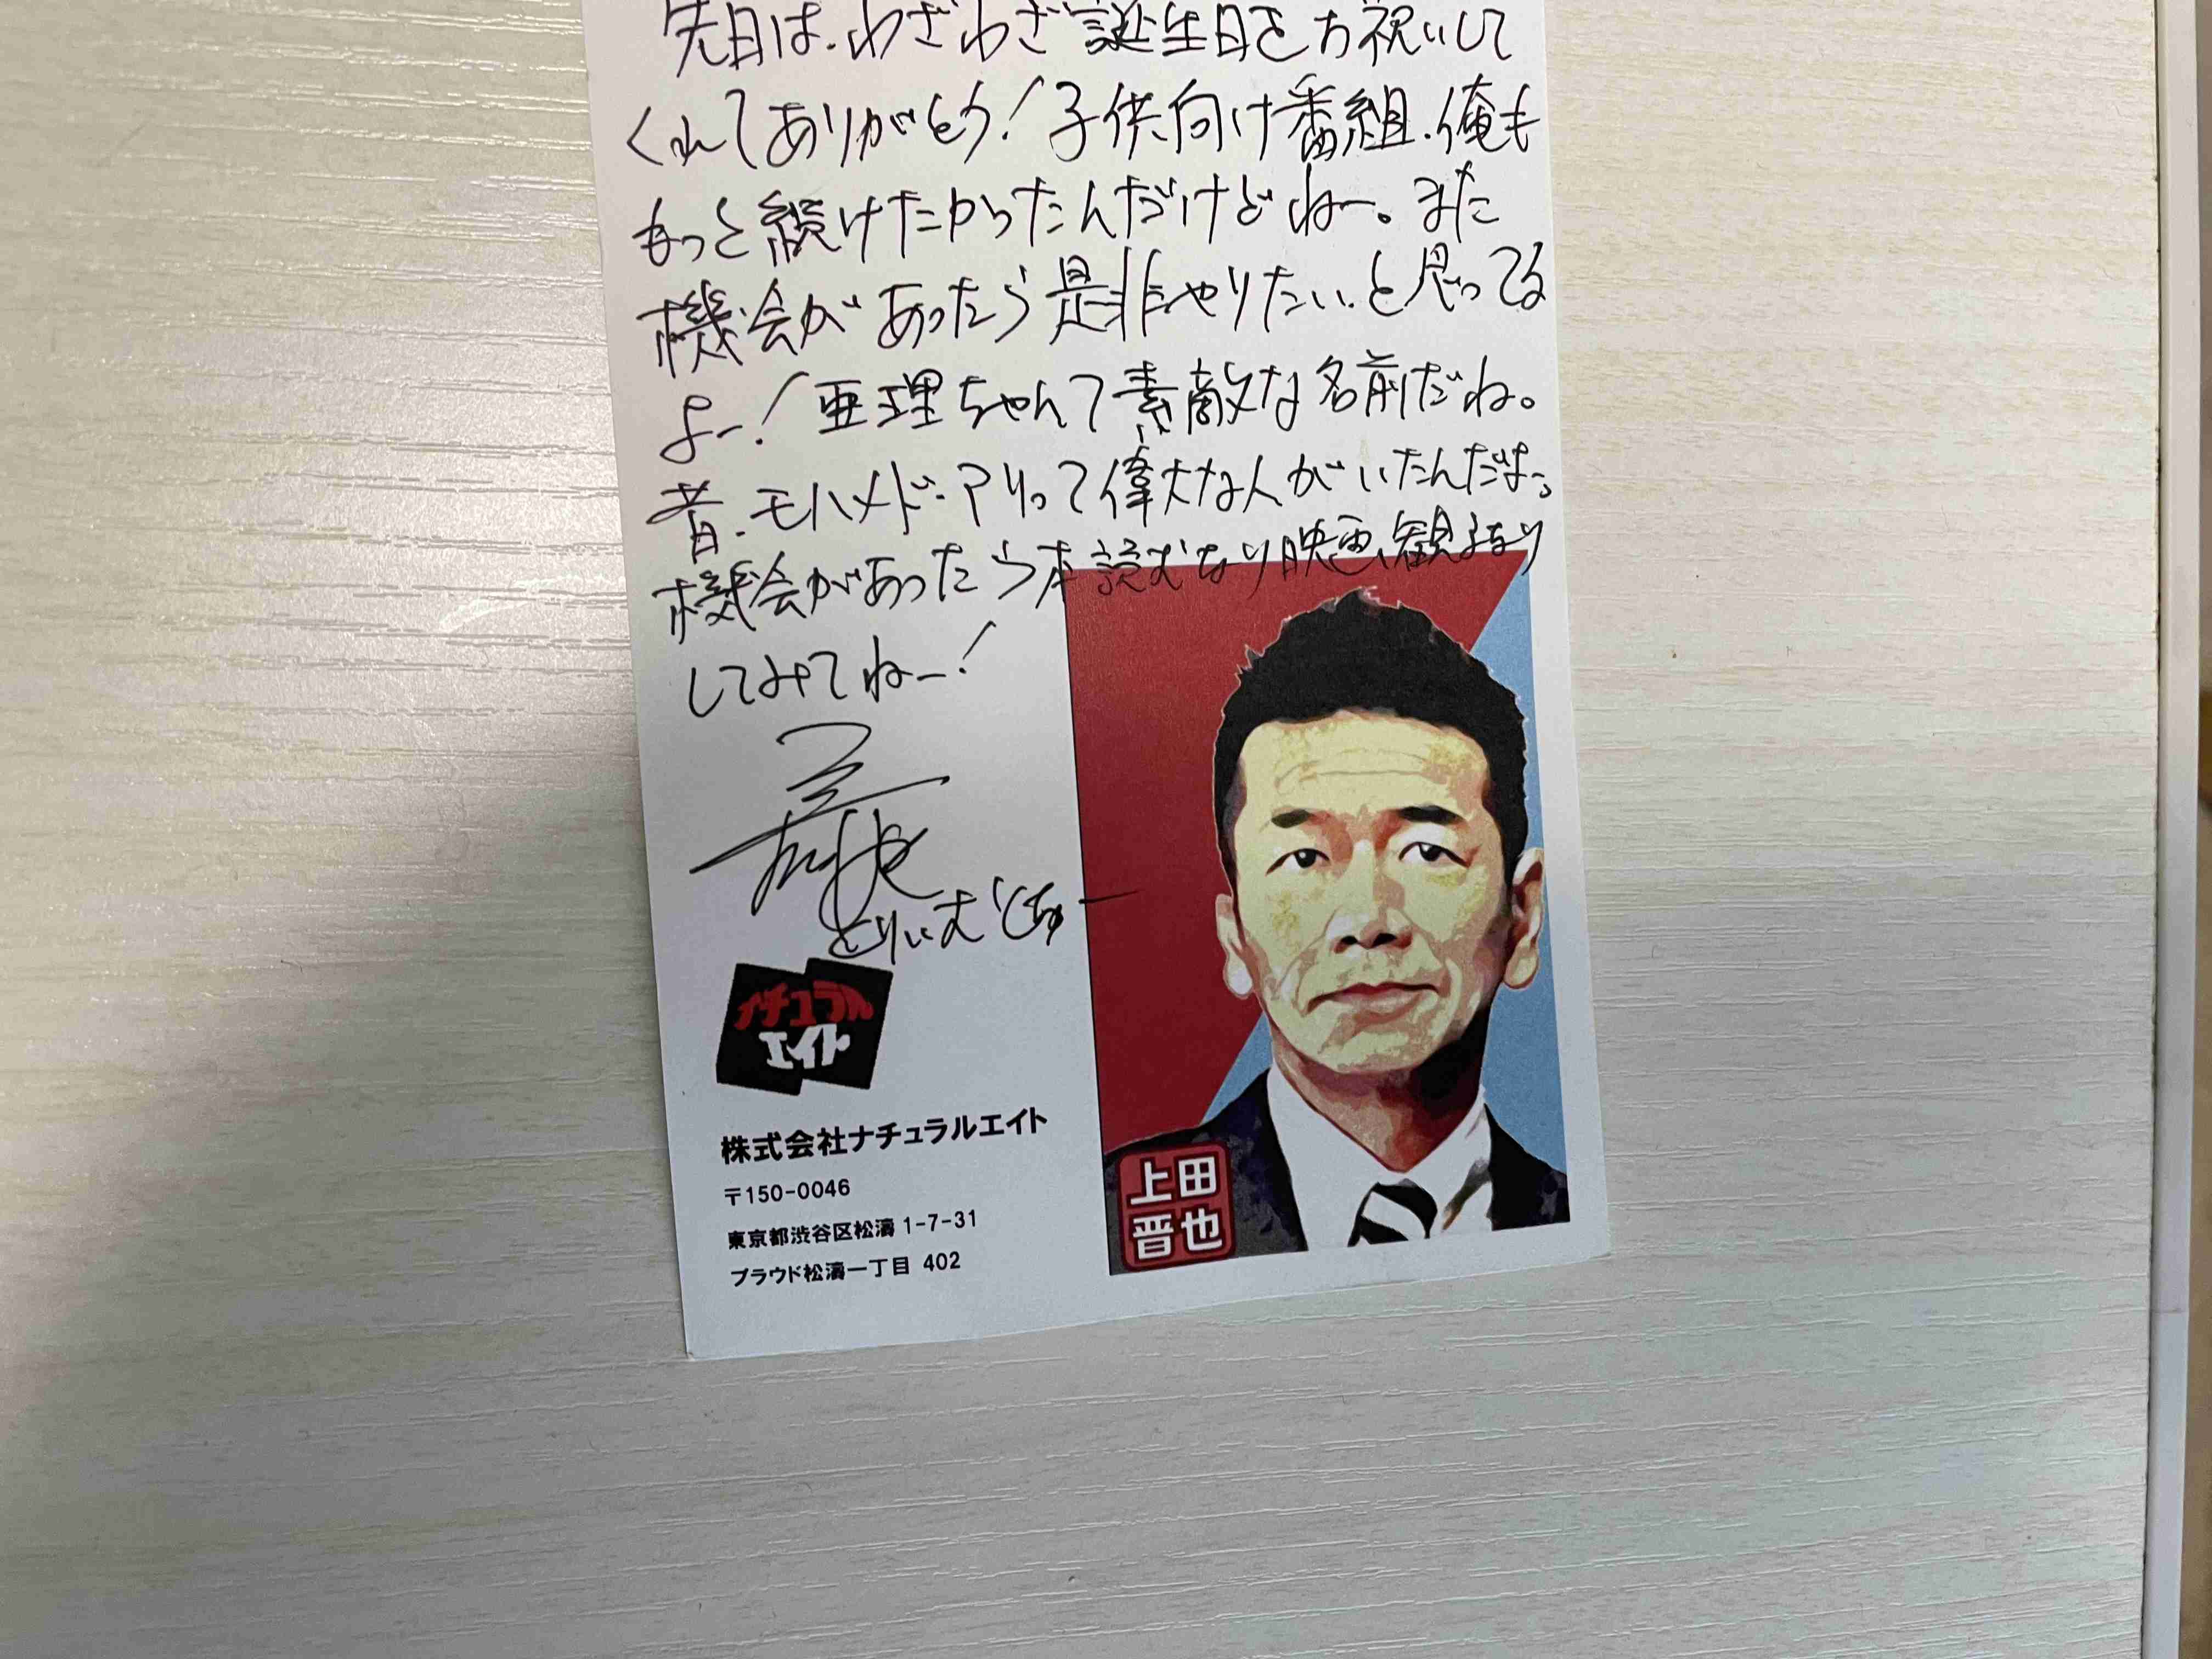 先日は、わざわざ誕生日をお祝いして
くれてありがとう！子供向け番組、俺も
もっと続けたかったんだけどねー。また
機会があったら是非やりたいと思ってる
よー！亜理ちゃんて素敵な名前だね。
昔、モハメド・アリって偉大な人がいたんだよ。
機会があったら本読むなり映画観るなり
してみてねー！
ナチュラル
エイト
株式会社ナチュラルエイト
〒150-0046
東京都渋谷区松濤 1-7-31
プラウド松濤一丁目 402
上田
晋也